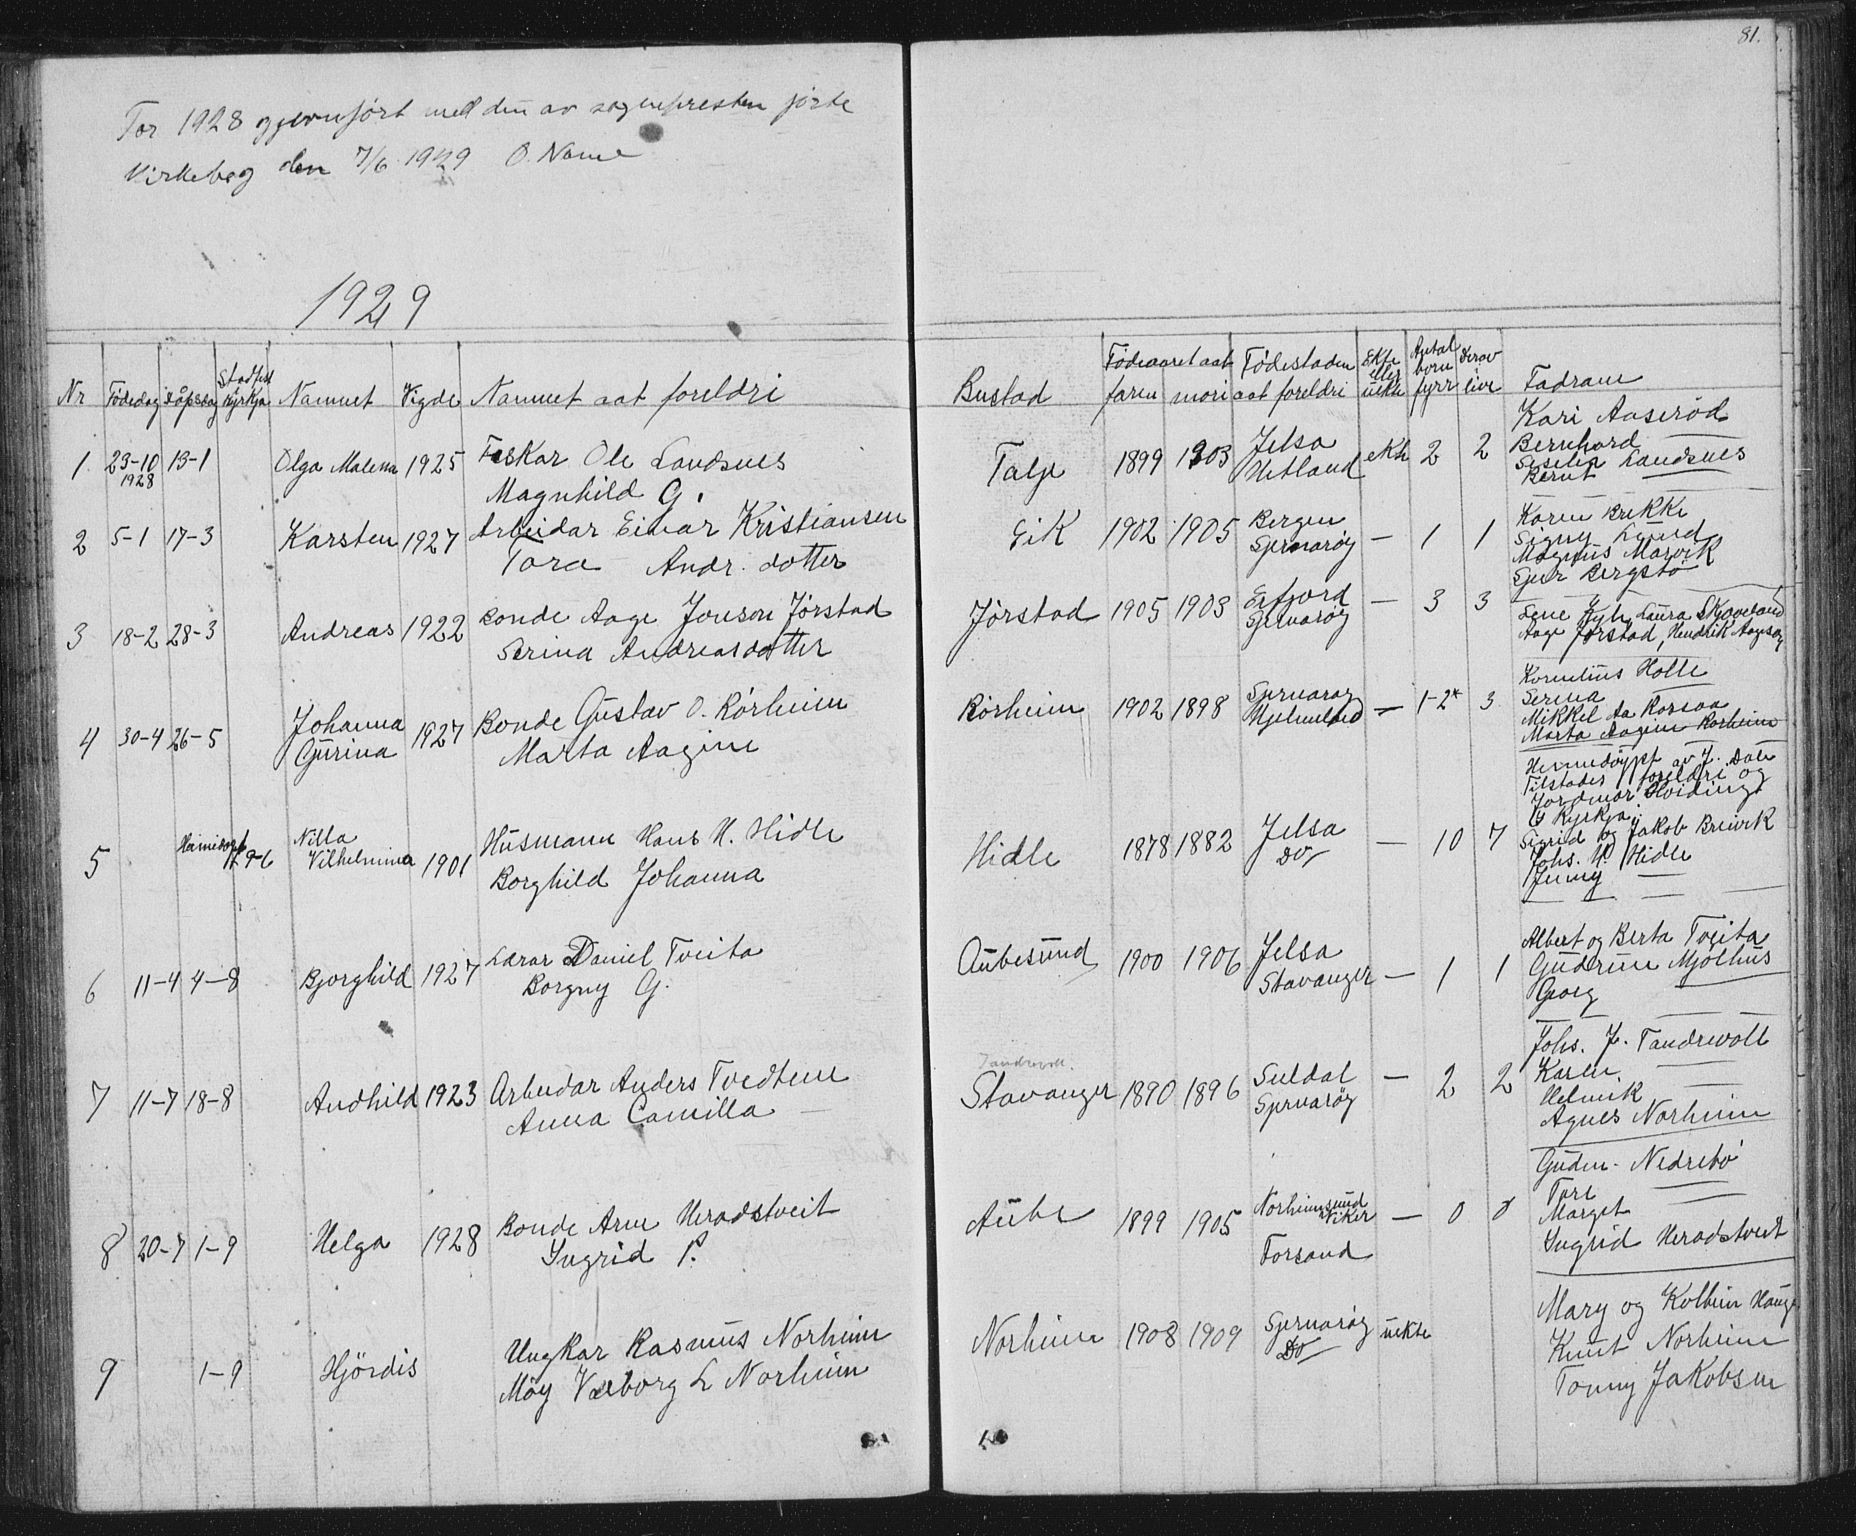 81.
For 1928 gjenomført med den av sognepresten førte
Kirkebog den 7/6 1929 O. Name
1929
Nr Fødedag Dåpsdag Stadfest Kyrkja Namnet Vigde Namnet aat foreldri Bustad Fødeaaret aat faren mori Fødestaden aat foreldri Ekte eller uekte Antal born fyrr Derav live Fadrane
1. 23-10 1928 13-1 Olga Malena 1925 Feskar Ole Landsnes
Magnhild G.
Talje 1899 1903 Jelsa
Hetland ekte 2 2
Kari Aaserød
Bernhard —
Berut Landsnes
2 5-1 17-3 Karsten 1927 Arbeidar Einar Kristiansen
Tora Andr. dotter
Eik 1902 1905 Bergen
Sjernarøy — 1 1
Karen Brekke
Signy Lund
Magnus Marvik
Sjur Bergstø
3 18-2 28-3 Andreas 1922 Bonde Aage Jonson Jørstad
Serina Andreasdotter
Jørstad 1905 1903 Erfjord
Sjernarøy — 3 3
Lene Kyh, Laura Skjoveland
Aage Jørstad, Hendrik Aagesøy
4 30-4 26-5 Johanna
Gurina 1927 Bonde Gustav O. Rørheim
Marta Aagine
Rørheim 1902 1898 Sjernarøy
Hjelmeland — 1-2* 3
Kornelius Holle
Serina
Mikkel Aa Rorsaa
Marta Aagine Rørheim
5 Heimedøypt 9-6 Nilla
Vilhelmina 1901 Husmann Hans H. Hidle
Borghild Johanna
Hidle 1878 1882 Jelsa
Do — 10 7
Heimedøypt av J. Dale
Tilstades foreldri og
Jordmor Hviding
Kyrkja:
Sigrid og Jakob Breivik
Johs. H. Hidle
Jenny —
6 11-4 4-8 Bjorghild 1927 Lærar Daniel Tveita
Borgny G.
Aubesund 1900 1906 Jelsa
Stavanger — 1 1
Albert og Berta Tveita
Gudrun Mjølhus
Georg —
7 11-7 18-8 Audhild 1923 Arbeidar Anders Tvedtene
Anna Camilla —
Tandrevoll.
Stavanger 1890 1896 Suldal
Sjernarøy — 2 2
Johs. J. Tandrevoll
Karen —
Helmik —
Agnes Norheim
8 20-7 1-9 Helga 1928 Bonde Arne Heradstveit
Ingrid P.
Aube 1899 1905 Norheimsund
Viker
Forsand — 0 0
Gudm. Nedrebø
Tore —
Marget —
Ingrid Heradstveit
9 1-9 Hjördis Ungkar Rasmus Norheim
Møy Valborg L Norheim
Norheim 1908 1909 Sjernarøy
Do uekte
Mary og Kolbein Hauge
Knut Norheim
Tonny Jakobsen